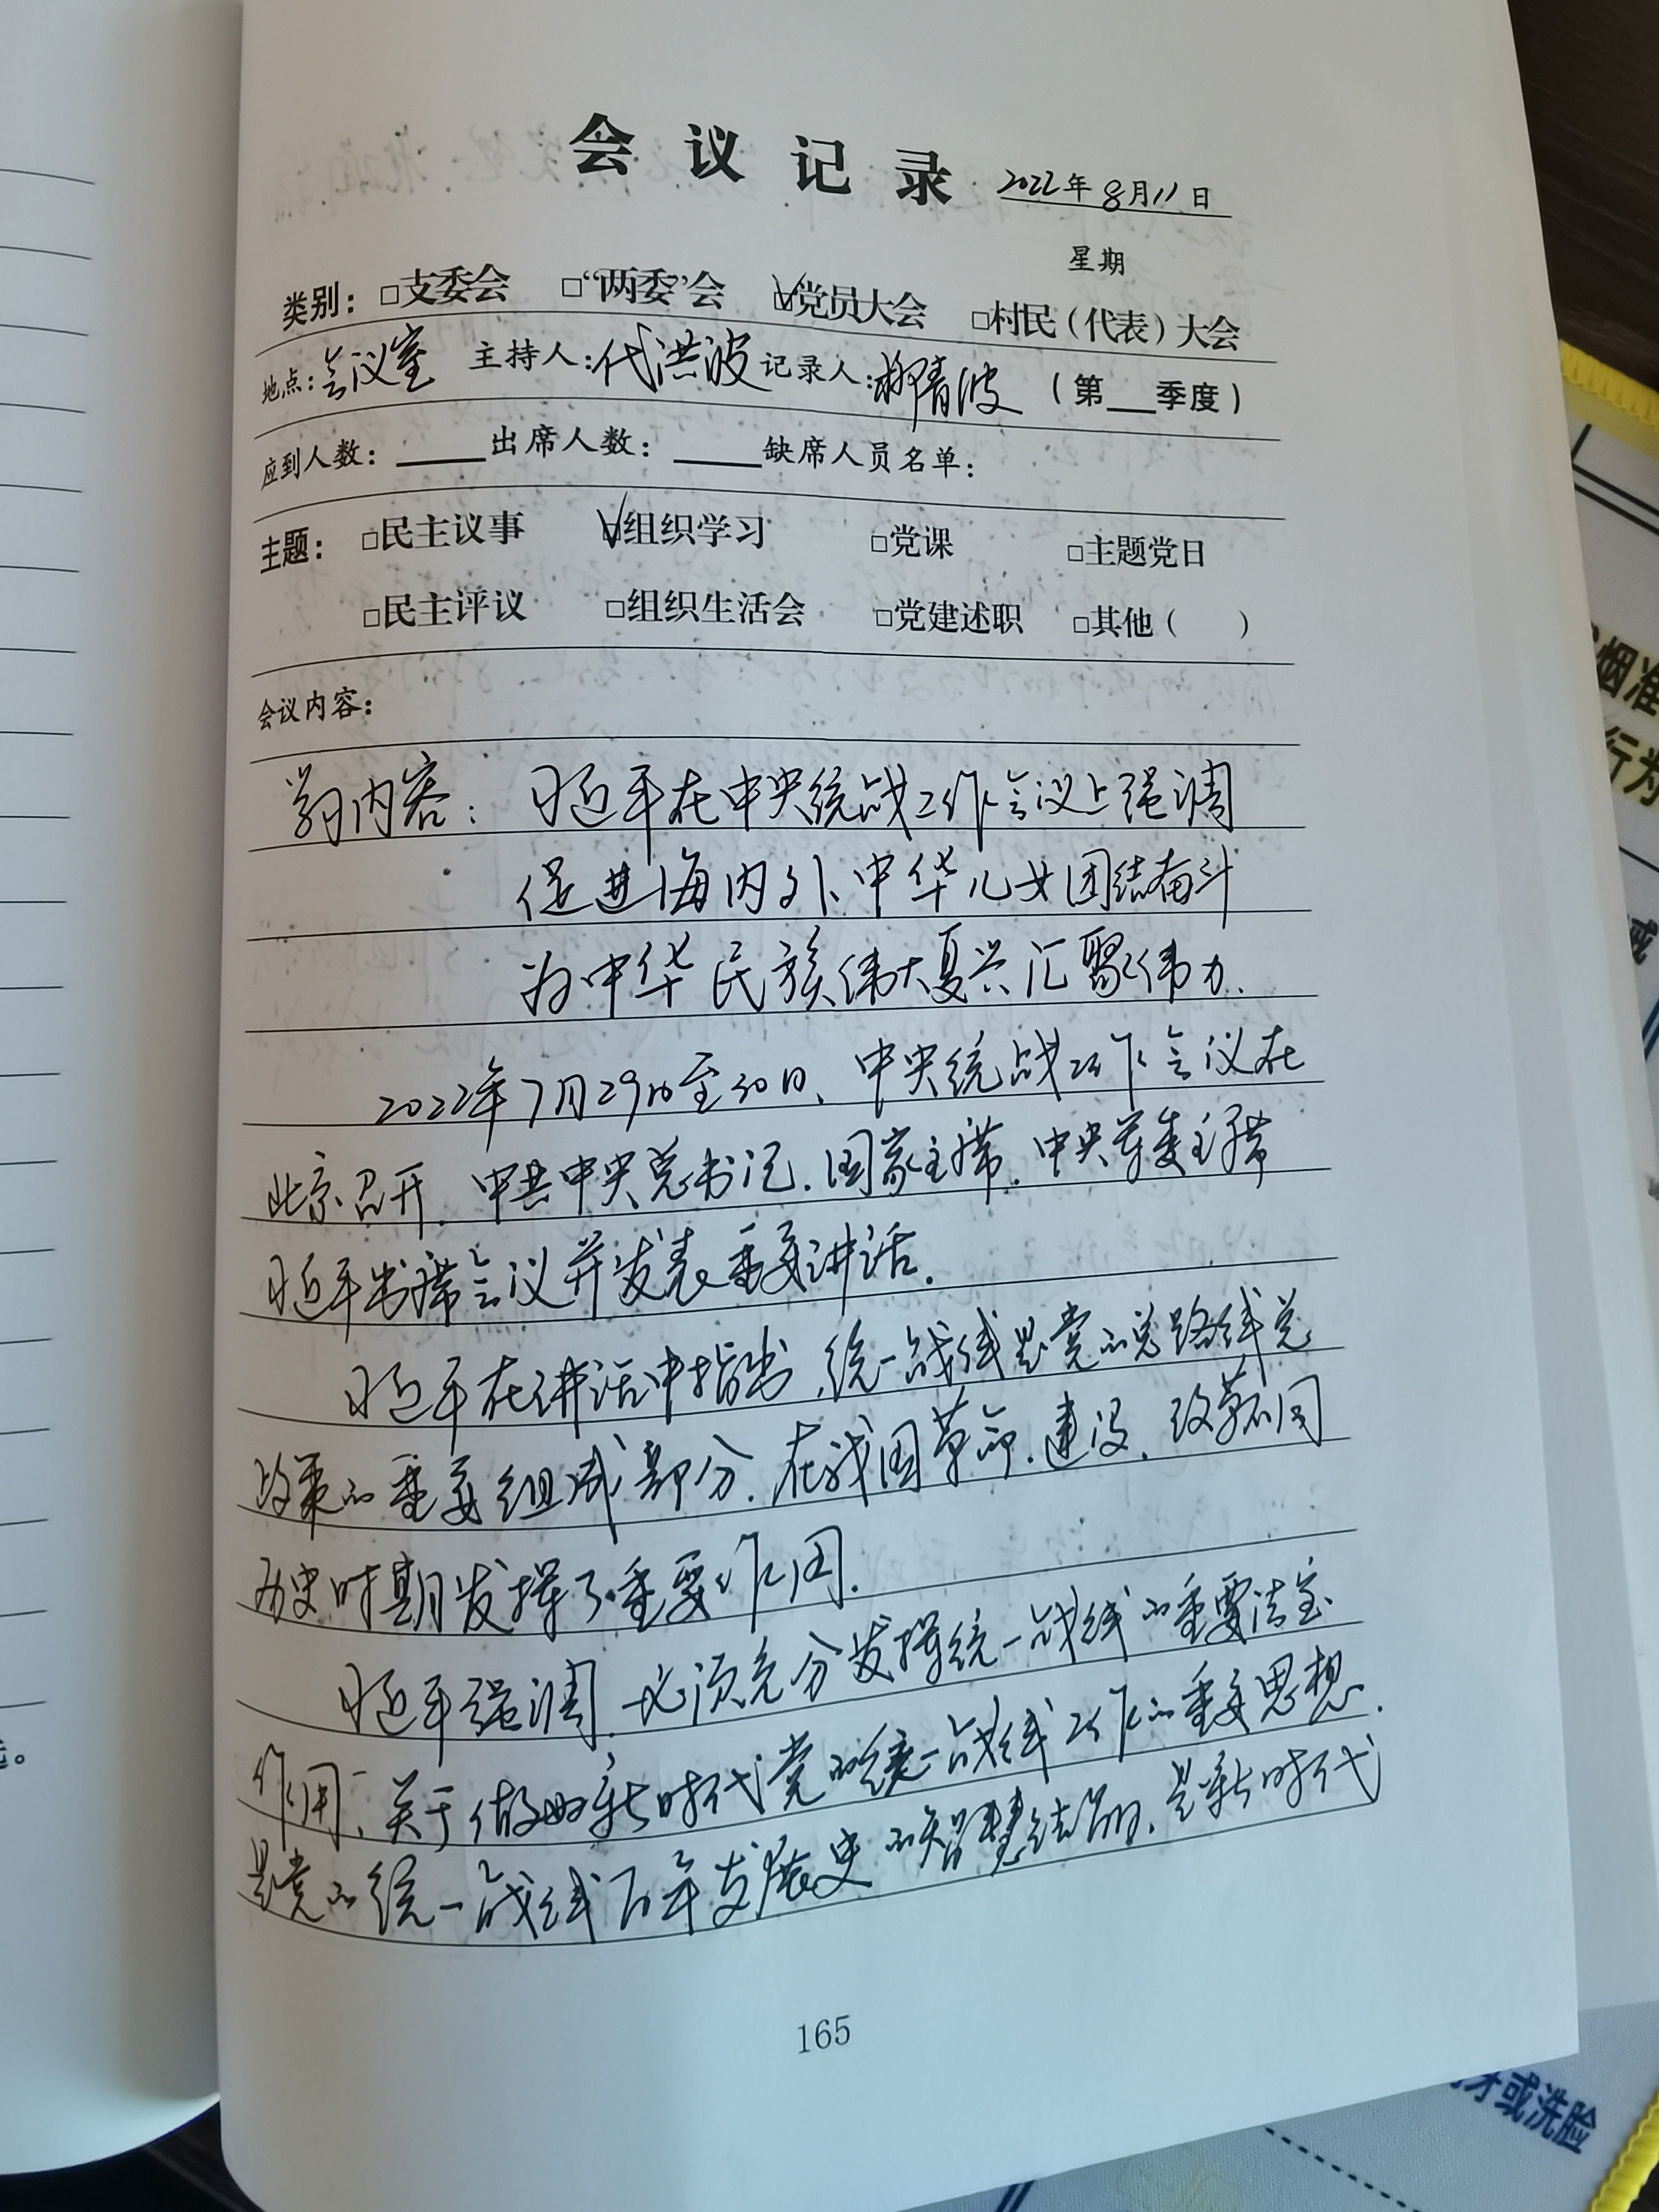 会议记录 2022年8月11日
星期
类别：□支委会 □“两委”会 ☑党员大会 □村民（代表）大会
地点：会议室 主持人：代洪波 记录人：柳青波 （第__季度）
应到人数：____出席人数：____缺席人员名单：
主题：□民主议事 ☑组织学习 □党课 □主题党日
□民主评议 □组织生活会 □党建述职 □其他（ ）
会议内容：
学习内容：习近平在中央统战工作会议上强调
促进海内外中华儿女团结奋斗
为中华民族伟大复兴汇聚伟力.
2022年7月29日至30日、中央统战工作会议在
北京召开.中共中央总书记.国家主席.中央军委主席
习近平出席会议并发表重要讲话.
习近平在讲话中指出,统一战线是党的总路线总
政策的重要组成部分.在我国革命.建设.改革不同
历史时期发挥了重要作用.
习近平强调.必须充分发挥统一战线的重要法宝
作用、关于做好新时代党的统一战线工作的重要思想.
是党的统一战线百年发展史的智慧结晶.是新时代
165
烟准
行为
或
牙或洗脸